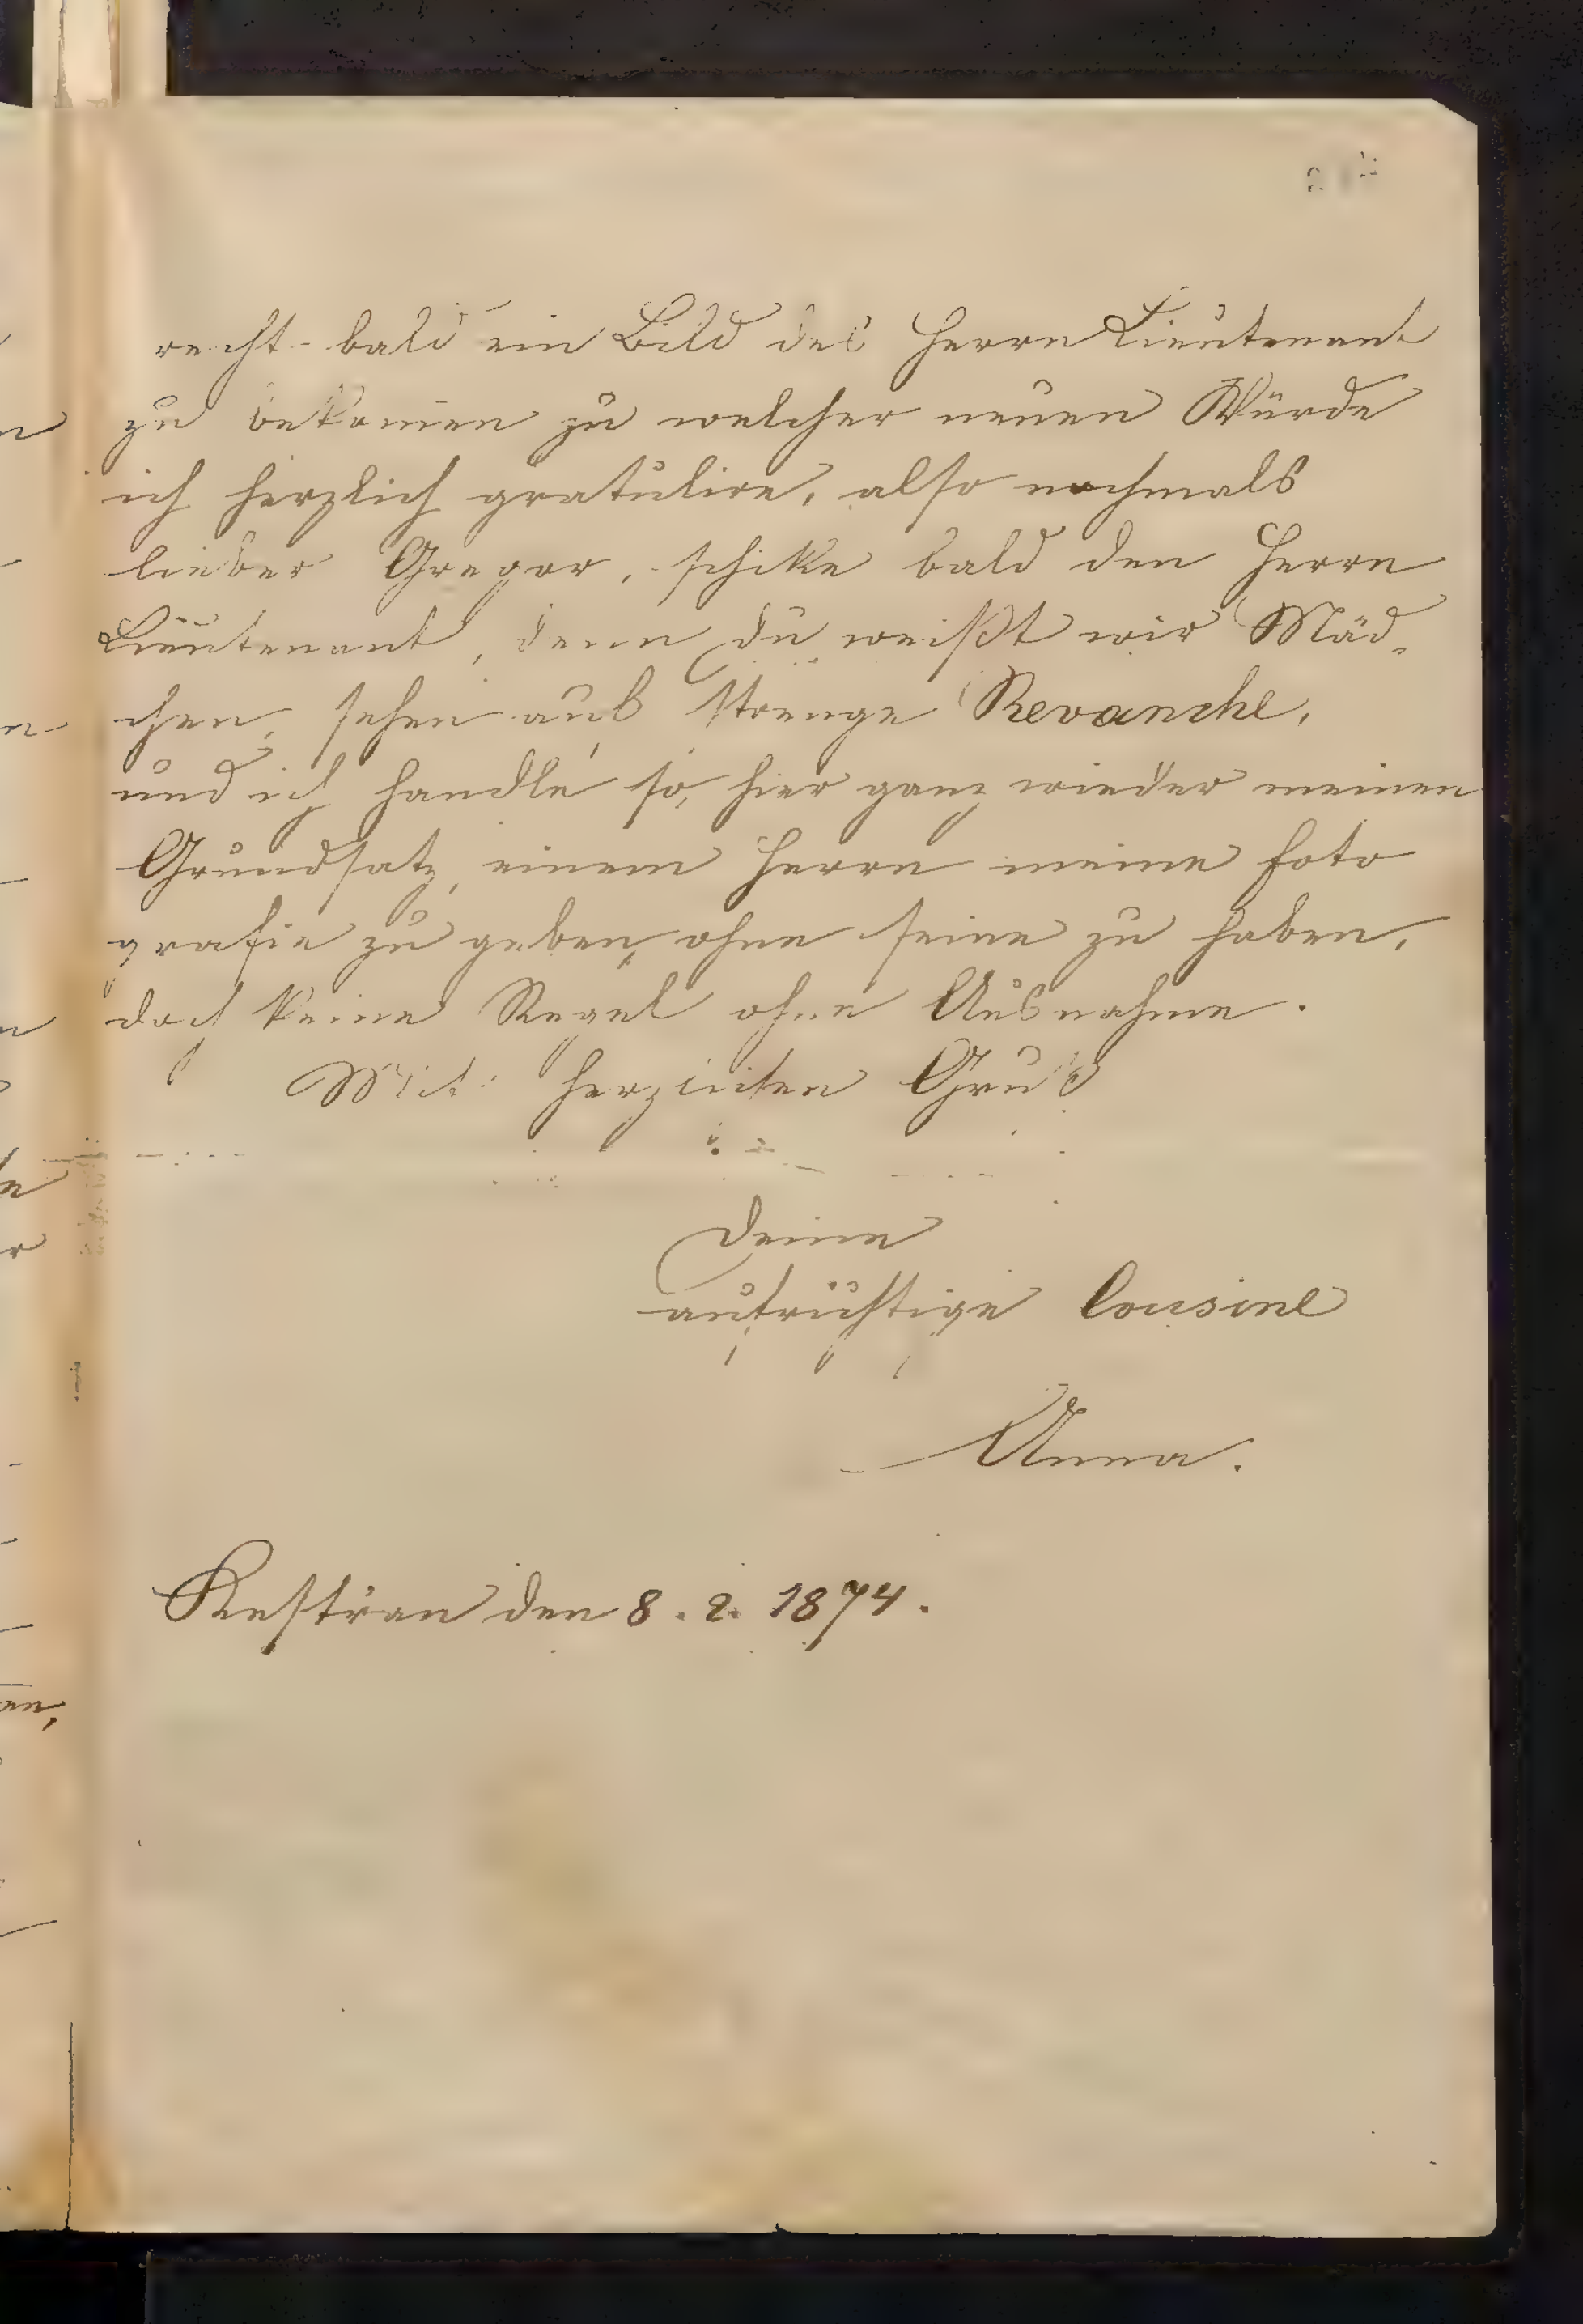 recht bald ein Bild des Herrn Lieutenant
zu bekom̄en zu welcher neuen Würde
ich herzlich gratulire, also nochmals
lieber Gregor, schike bald den Herrn
Lieutenant, denn du weißt wir Mäd-
chen, sehen auf strenge Revanche,
und ich handle so, hier ganz wieder meinen
Grundsatz, einem Herrn meine Foto
grafie zu geben, ohne seine zu haben,
doch keine Regel ohne Ausnahme.
Mit herzlichen Gruß
Deine
aufrichtige Cousine
Anna.
den 8. 2. 1874.